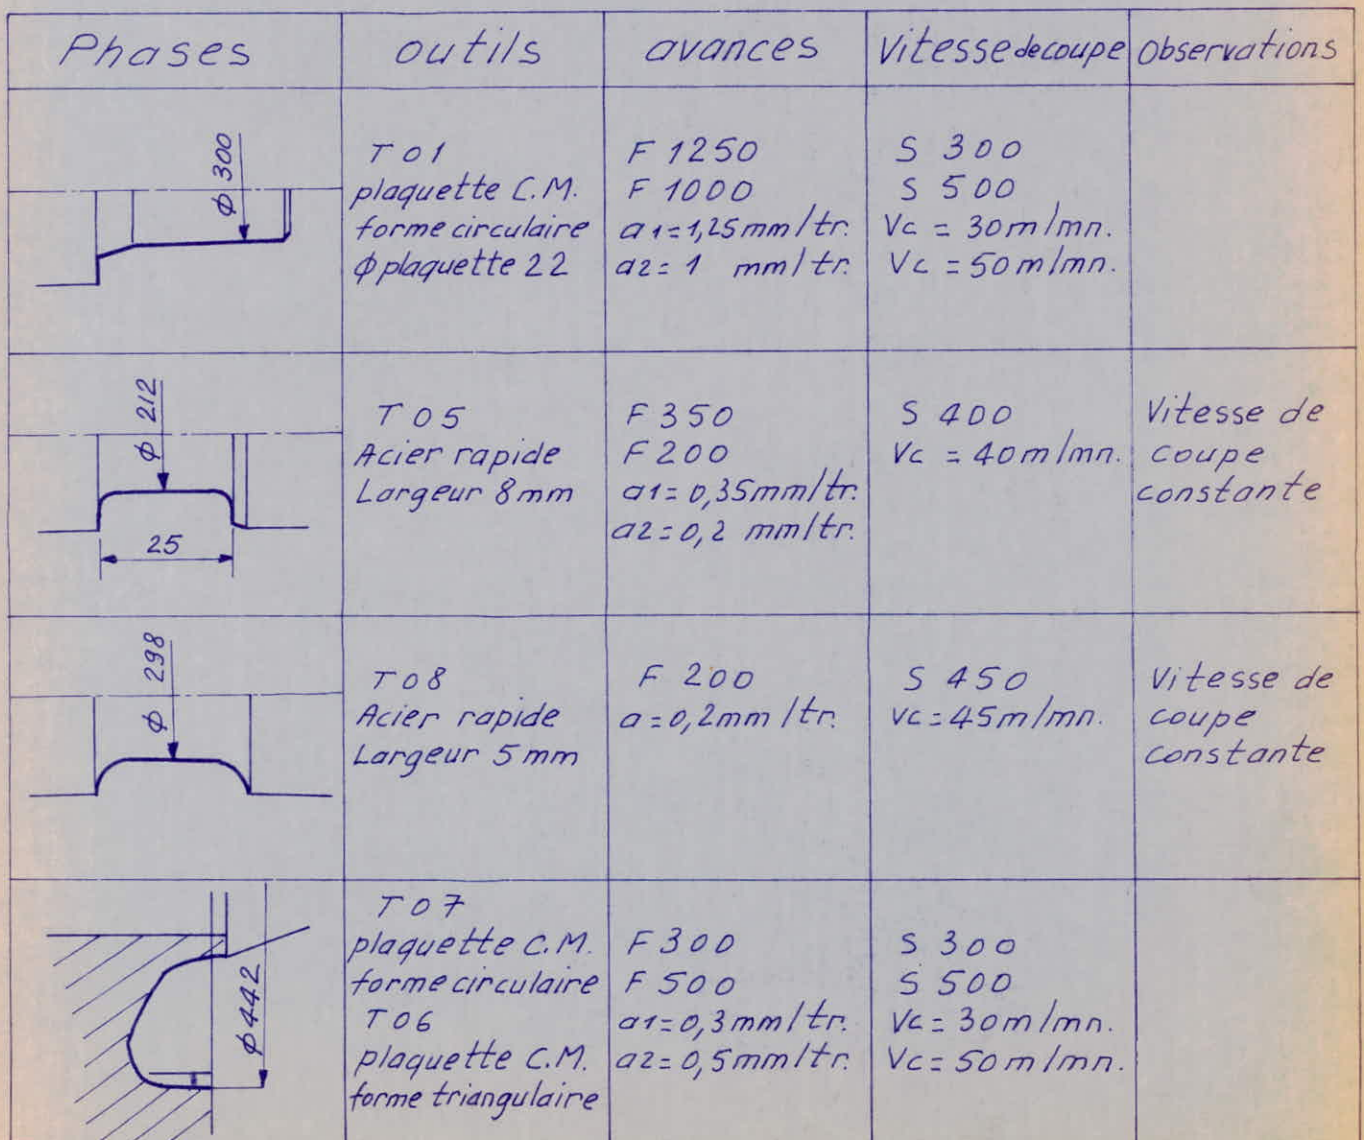 Phases outils avances Vitesse de coupe Observations
ϕ 300
T 01
plaquette C.M.
forme circulaire
ϕ plaquette 22
F 1250
F 1000
a1=1,25mm/tr.
a2= 1 mm/tr.
S 300
S 500
Vc = 30m/mn.
Vc = 50m/mn.
ϕ 212
25
T 05
Acier rapide
Largeur 8mm
F 350
F 200
a1= 0,35mm/tr.
a2= 0,2 mm/tr.
S 400
Vc = 40m/mn.
Vitesse de
coupe
constante
ϕ 298
T 08
Acier rapide
Largeur 5mm
F 200
a=0,2mm/tr.
S 450
Vc=45m/mn.
Vitesse de
coupe
constante
ϕ 442
T 07
plaquette C.M.
forme circulaire
T 06
plaquette C.M.
forme triangulaire
F 300
F 500
a1=0,3mm/tr.
a2=0,5mm/tr.
S 300
S 500
Vc= 30m/mn.
Vc= 50m/mn.